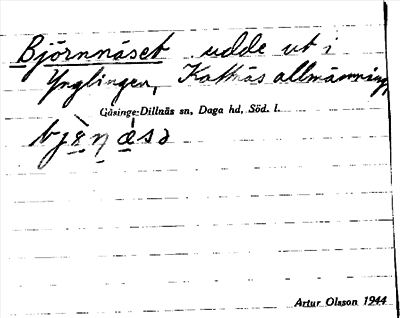 Björnnäset udde ut i
Ynglingen, Kattnäs allmänning
Gåsinge-Dillnäs sn, Daga hd, Söd. l.
Artur Olsson 1944